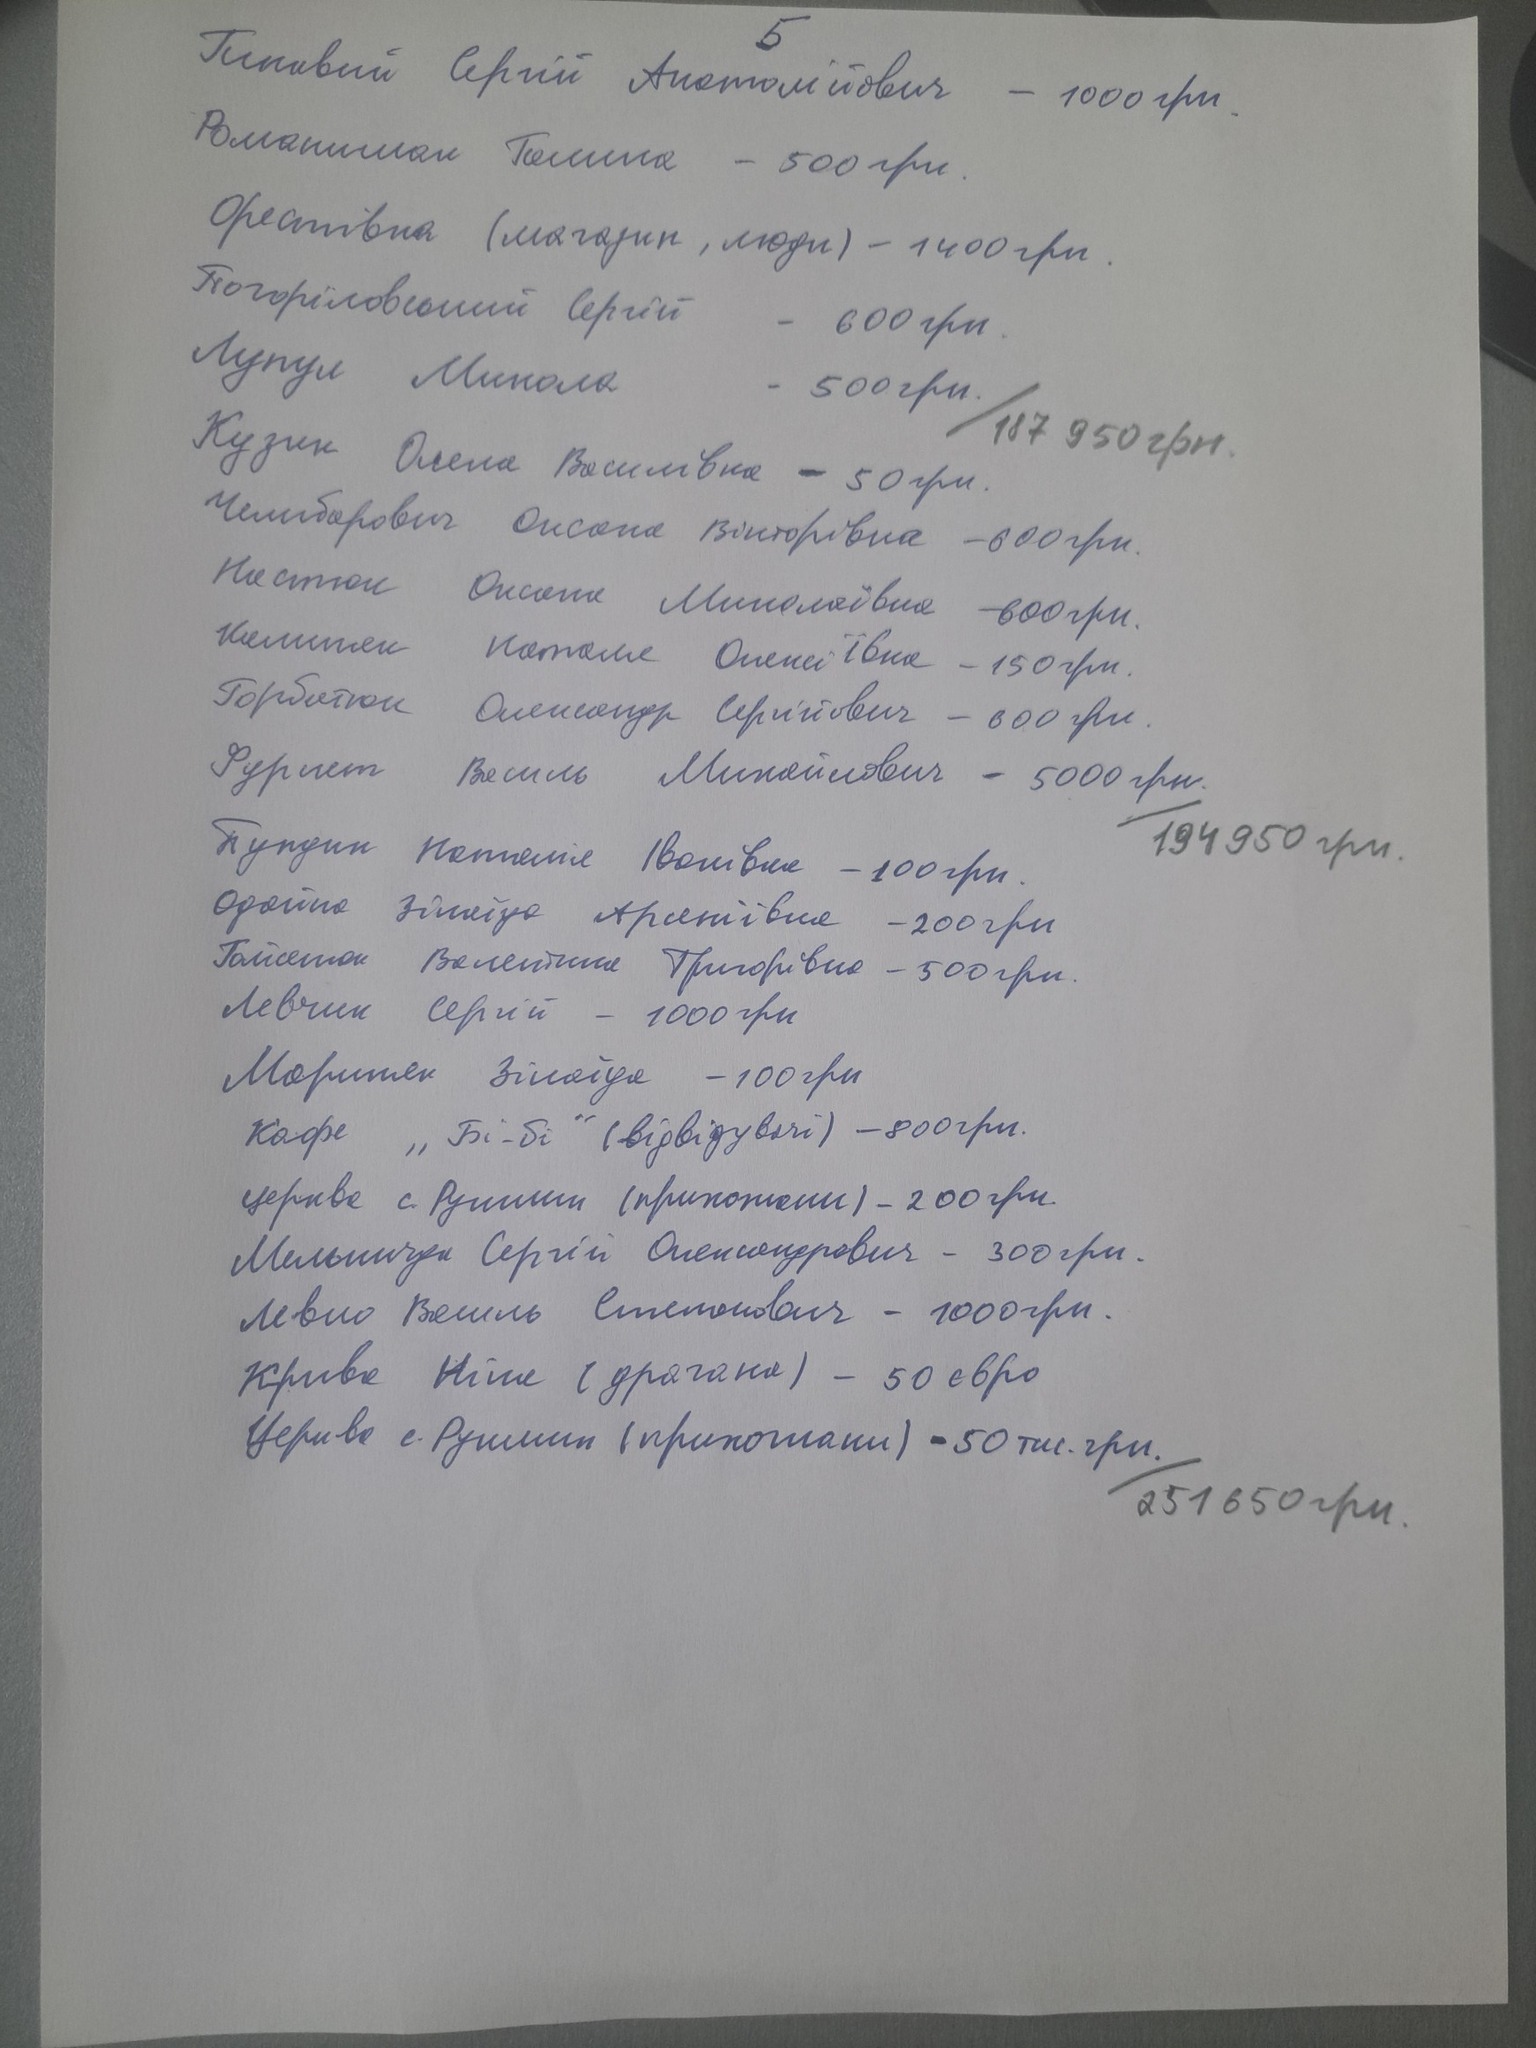 5
Гиновий Сергій Анатолійович - 1000 грн.
Романишак Галина - 500 грн.
Орестівка (магазин, люди) - 1400 грн.
Погоріловський Сергій - 600 грн.
Лупул Микола - 500 грн.
187 950 грн.
Кузик Олена Василівна - 50 грн.
Челибарович Оксана Вікторівна - 600 грн.
Настюк Оксана Миколаївна - 600 грн.
Калитяк Наталія Олексіївна - 150 грн.
Горбатюк Олександр Сергійович - 600 грн.
Фурлет Василь Михайлович - 5000 грн.
194 950 грн.
Пундик Наталія Іванівна - 100 грн.
Одайна Зінаїда Арсентіївна - 200 грн
Гайсенюк Валентина Григорівна - 500 грн.
Левчик Сергій - 1000 грн
Маритяк Зінаїда - 100 грн
Кафе „Бі-бі“ (відвідувачі) - 800 грн.
церква с. Рукшин (прихожани) - 200 грн.
Мельничук Сергій Олександрович - 300 грн.
Левко Василь Степанович - 1000 грн.
Крива Ніна (драгана) - 50 євро
Церква с. Рукшин (прихожани) - 50 тис. грн.
251 650 грн.